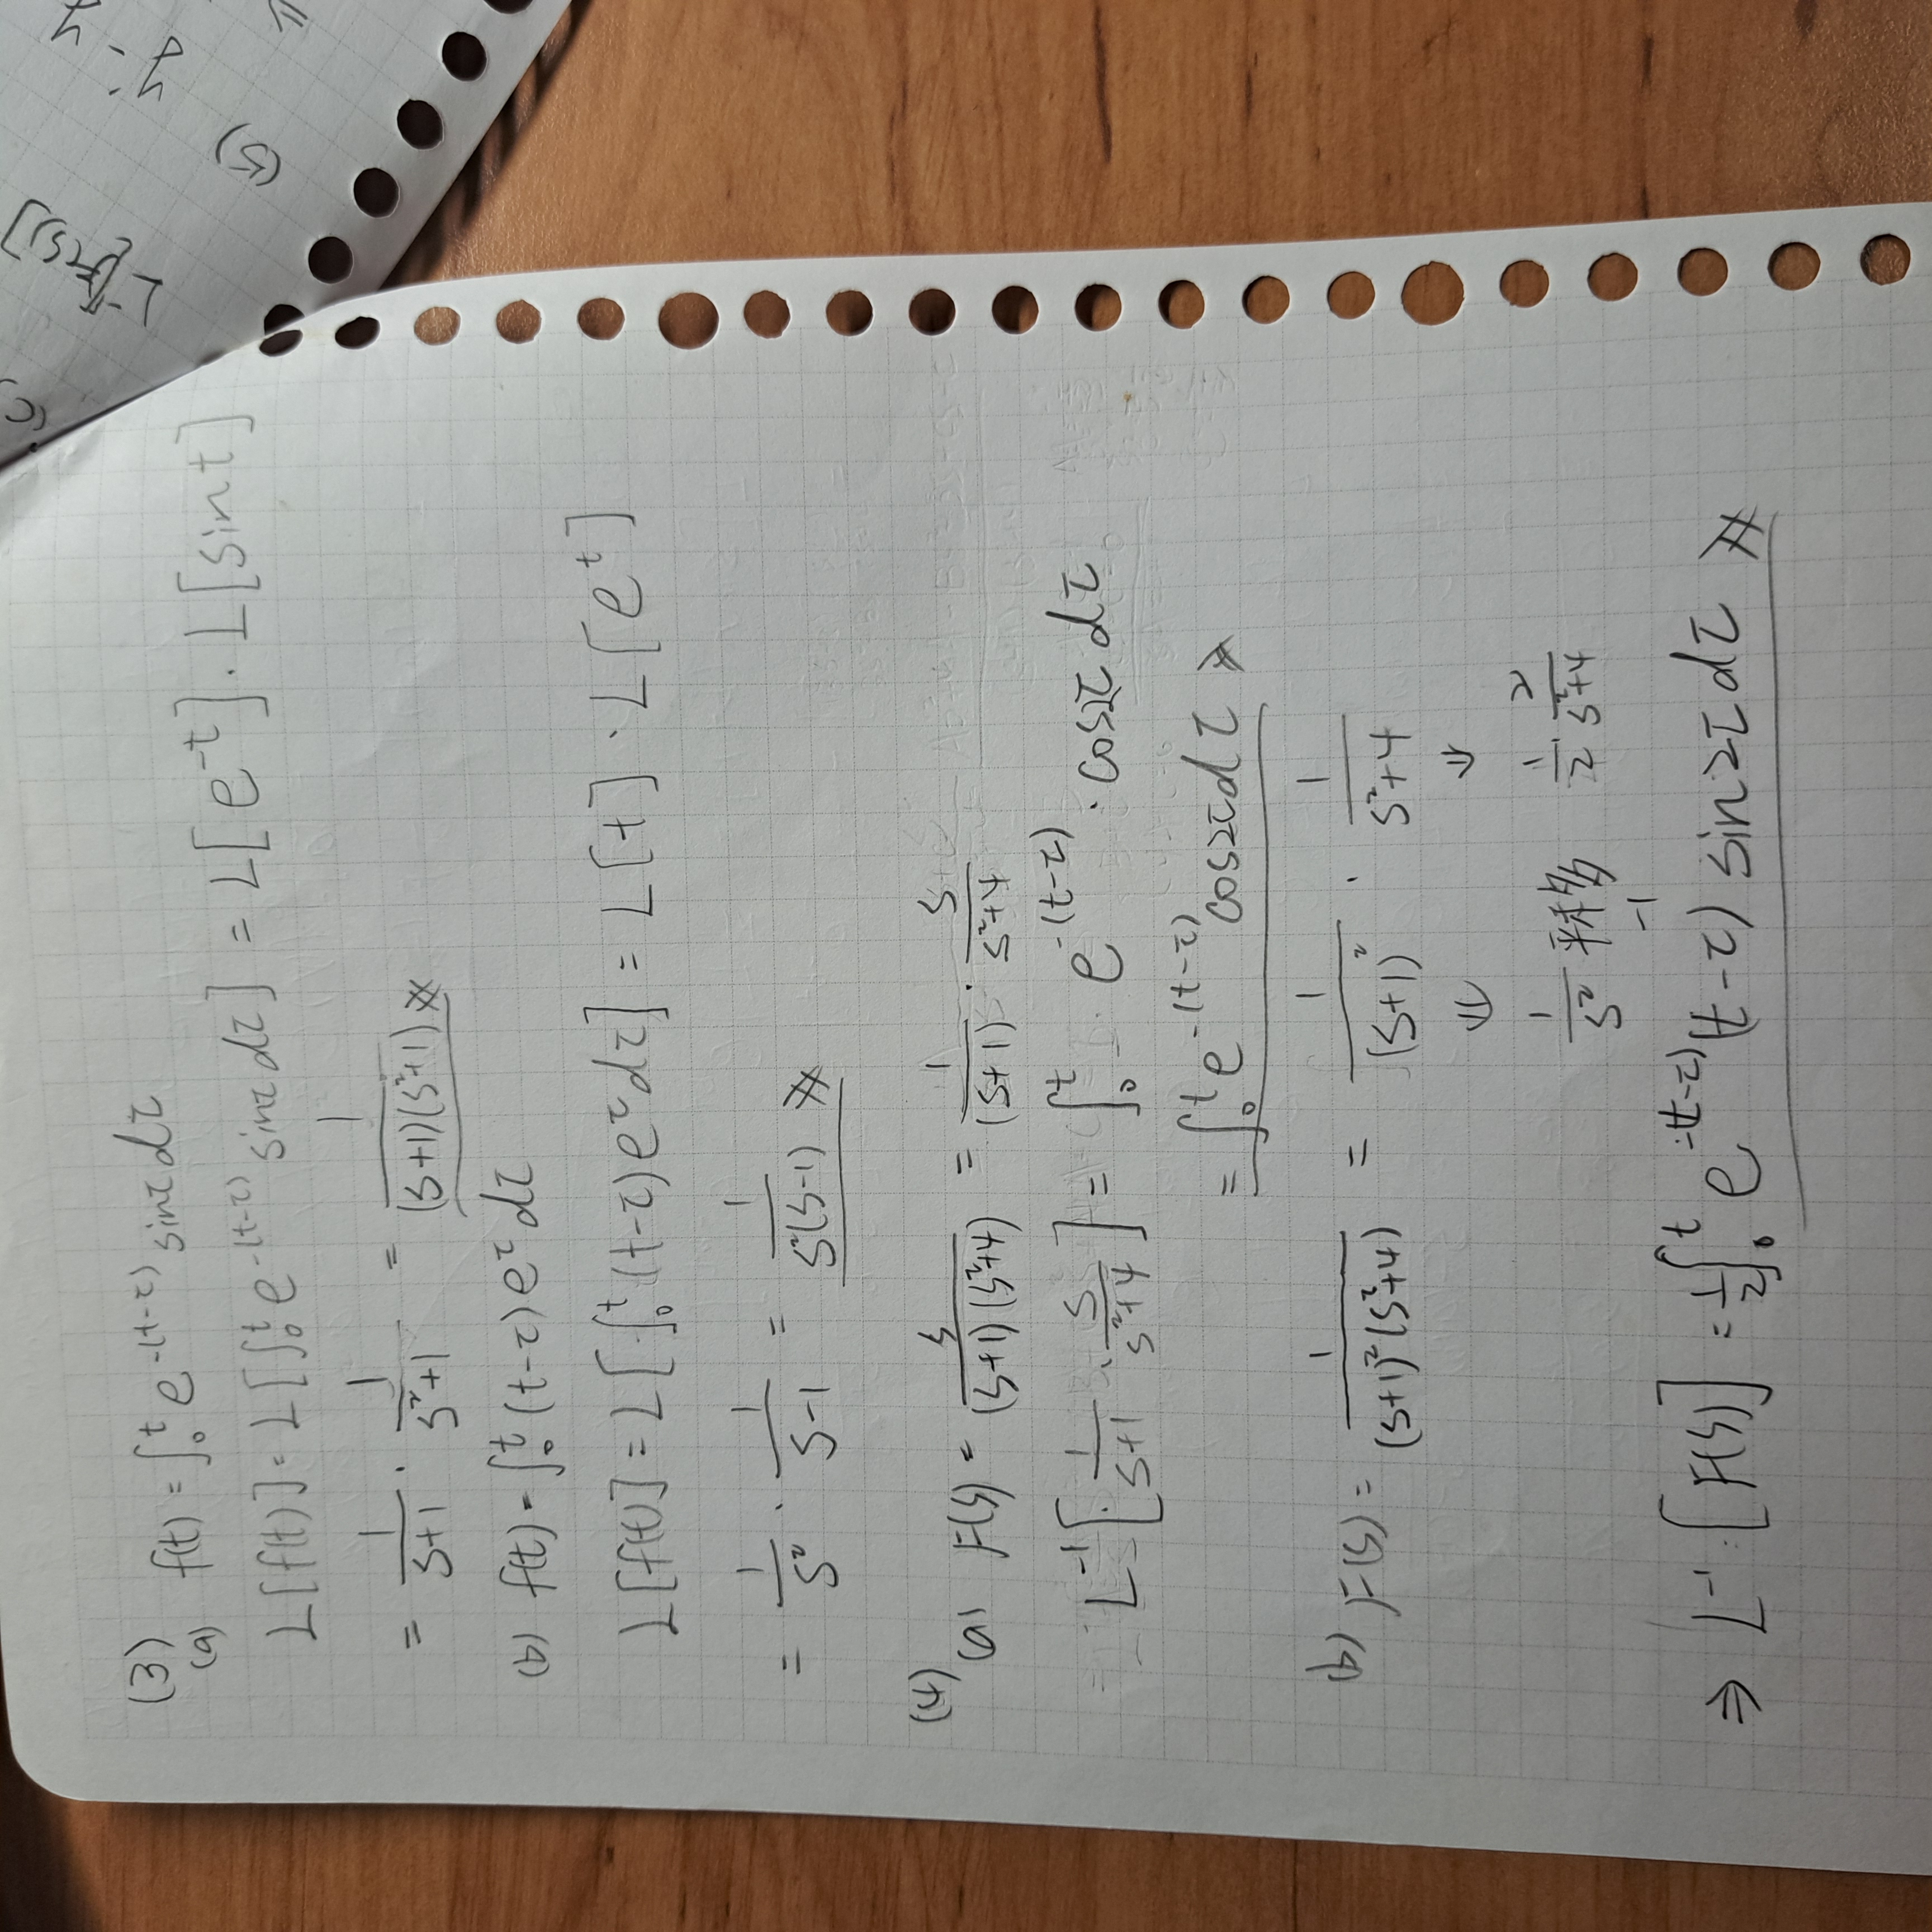 (3)
(a) f(t) = ∫₀ᵗ e^{-(t-τ)} sinτ dτ
L[f(t)] = L[∫₀ᵗ e^{-(t-τ)} sinτ dτ] = L[e^{-t}] · L[sint]
= 1/(s+1) · 1/(s²+1) = 1/((s+1)(s²+1))
(b) f(t) = ∫₀ᵗ (t-τ)e^τ dτ
L[f(t)] = L[∫₀ᵗ (t-τ)e^τ dτ] = L[t] · L[e^t]
= 1/s² · 1/(s-1) = 1/(s²(s-1))
(4)
(a) F(s) = s/((s+1)(s²+4)) = 1/(s+1) · s/(s²+4)
L⁻¹[1/(s+1) · s/(s²+4)] = ∫₀ᵗ e^{-(t-τ)} · cos2τ dτ
= ∫₀ᵗ e^{-(t-τ)} cos2τ dτ
b) F(s) = 1/((s+1)²(s²+4)) = 1/(s+1)² · 1/(s²+4)
⇓ ⇓
1/s² 移 -1 1/2 · 2/(s²+4)
⇒ L⁻¹[F(s)] = 1/2 ∫₀ᵗ e^{-(t-τ)} (t-τ) sin2τ dτ
L⁻¹[F(s)]
(5)